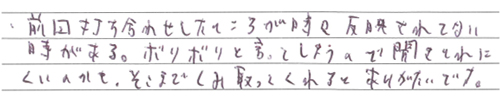 ・前回打ち合わせしたところが時々反映されてない
時がある。ボソボソと言ってしまうので聞きとれに
くいのかも。そこまでくみ取ってくれると ありがたいです。